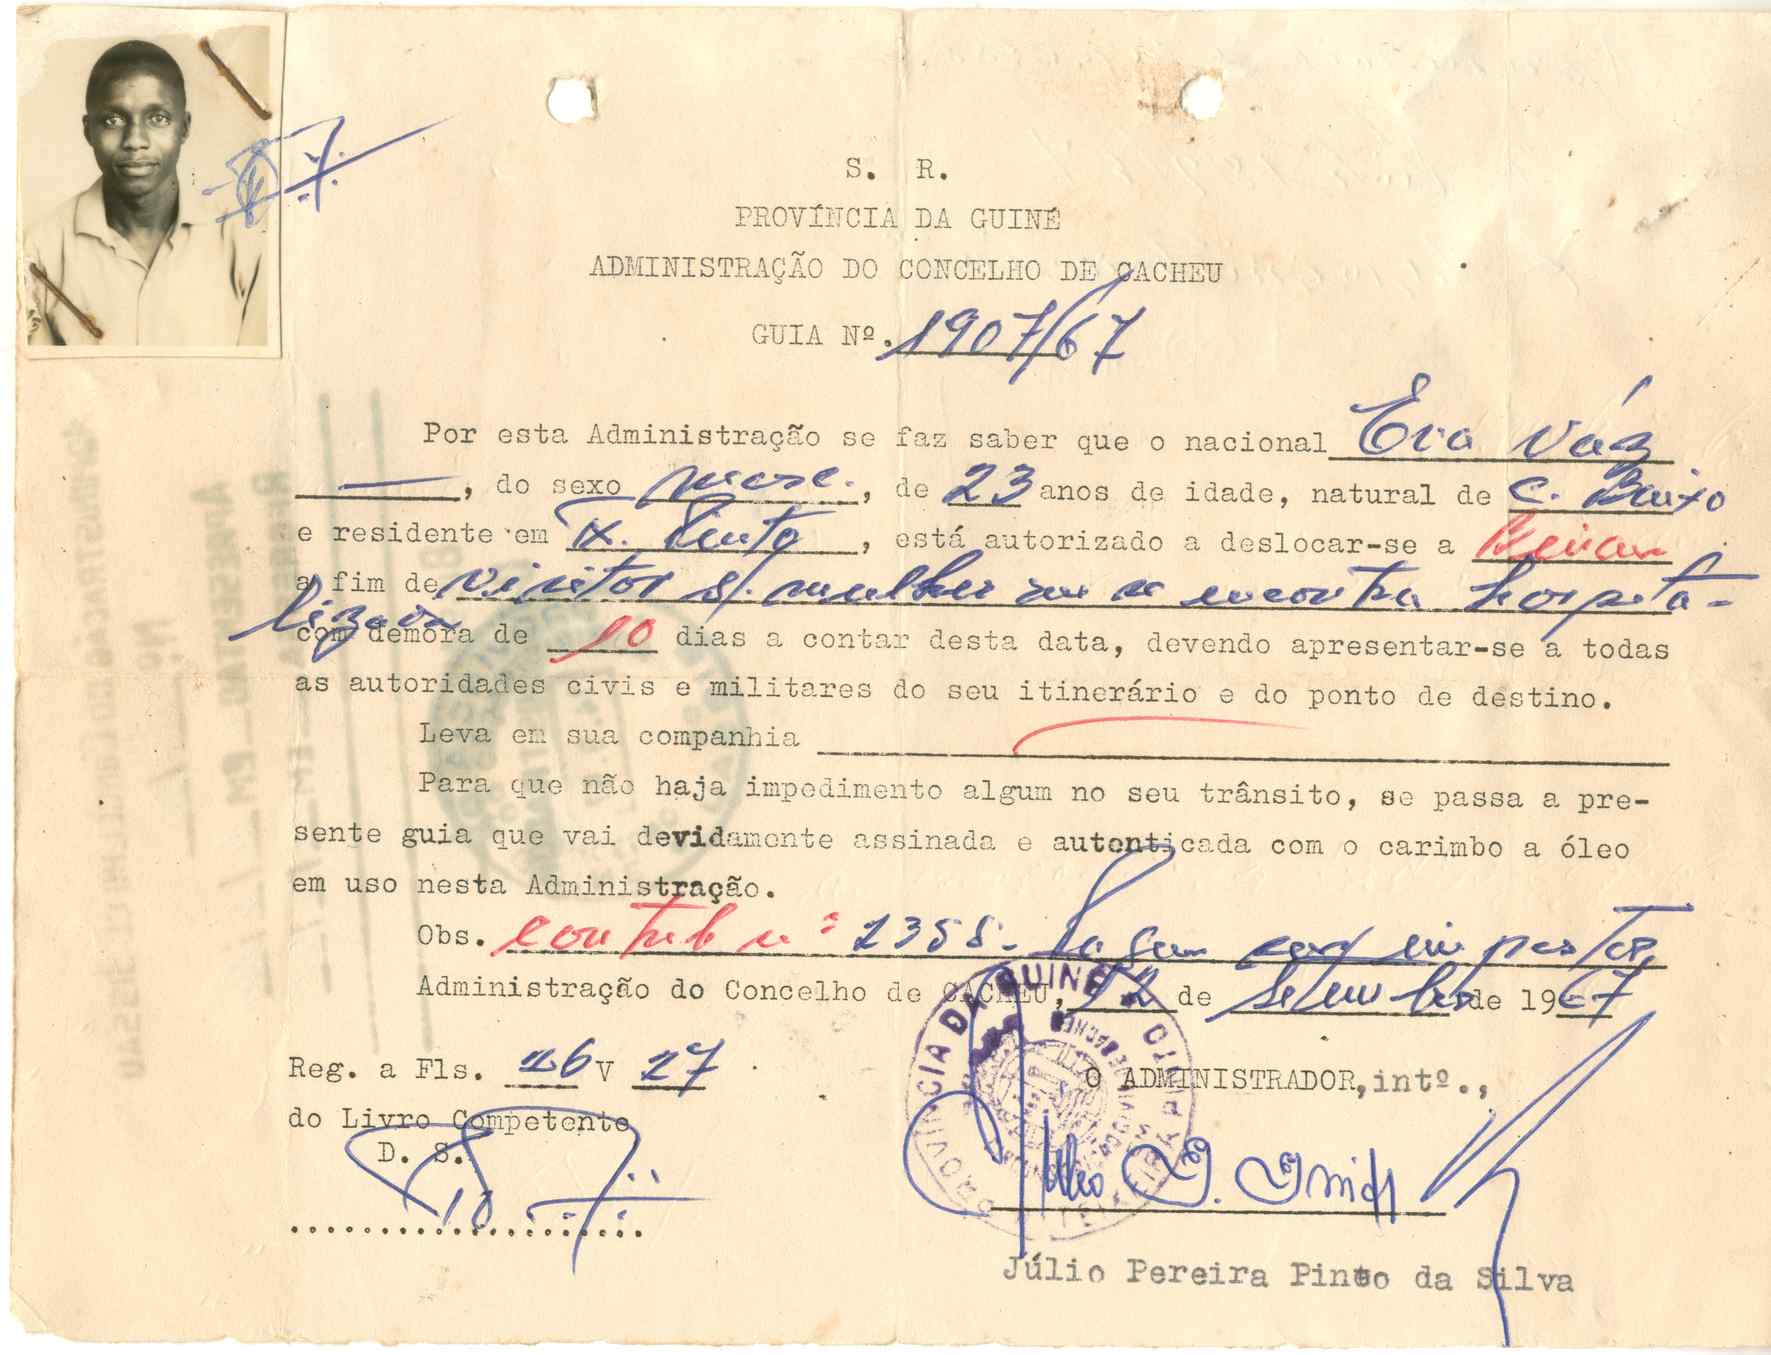 S. R.
PROVÍNCIA DA GUINÉ
ADMINISTRAÇÃO DO CONCELHO DE CACHEU
GUIA Nº. 1907/67
Por esta Administração se faz saber que o nacional Eva Váz
—, do sexo masc., de 23 anos de idade, natural de C. Baixo
e residente em T. Pinto, está autorizado a deslocar-se a
a fim de visitar s/. mulher que se encontra hospita-
lizada
com demora de 10 dias a contar desta data, devendo apresentar-se a todas
as autoridades civis e militares do seu itinerário e do ponto de destino.
Leva em sua companhia
Para que não haja impedimento algum no seu trânsito, se passa a pre-
sente guia que vai devidamente assinada e autenticada com o carimbo a óleo
em uso nesta Administração.
Obs. Contrib nº 2355. impostos,
Administração do Concelho de CACHEU, 12 de Setembro de 1967
Reg. a Fls. 26 V 27
do Livro Competente
D. S.
O ADMINISTRADOR, intº.,
PROVÍNCIA DA GUINÉ
TEIXEIRA PINTO
Júlio Pereira Pinto da Silva